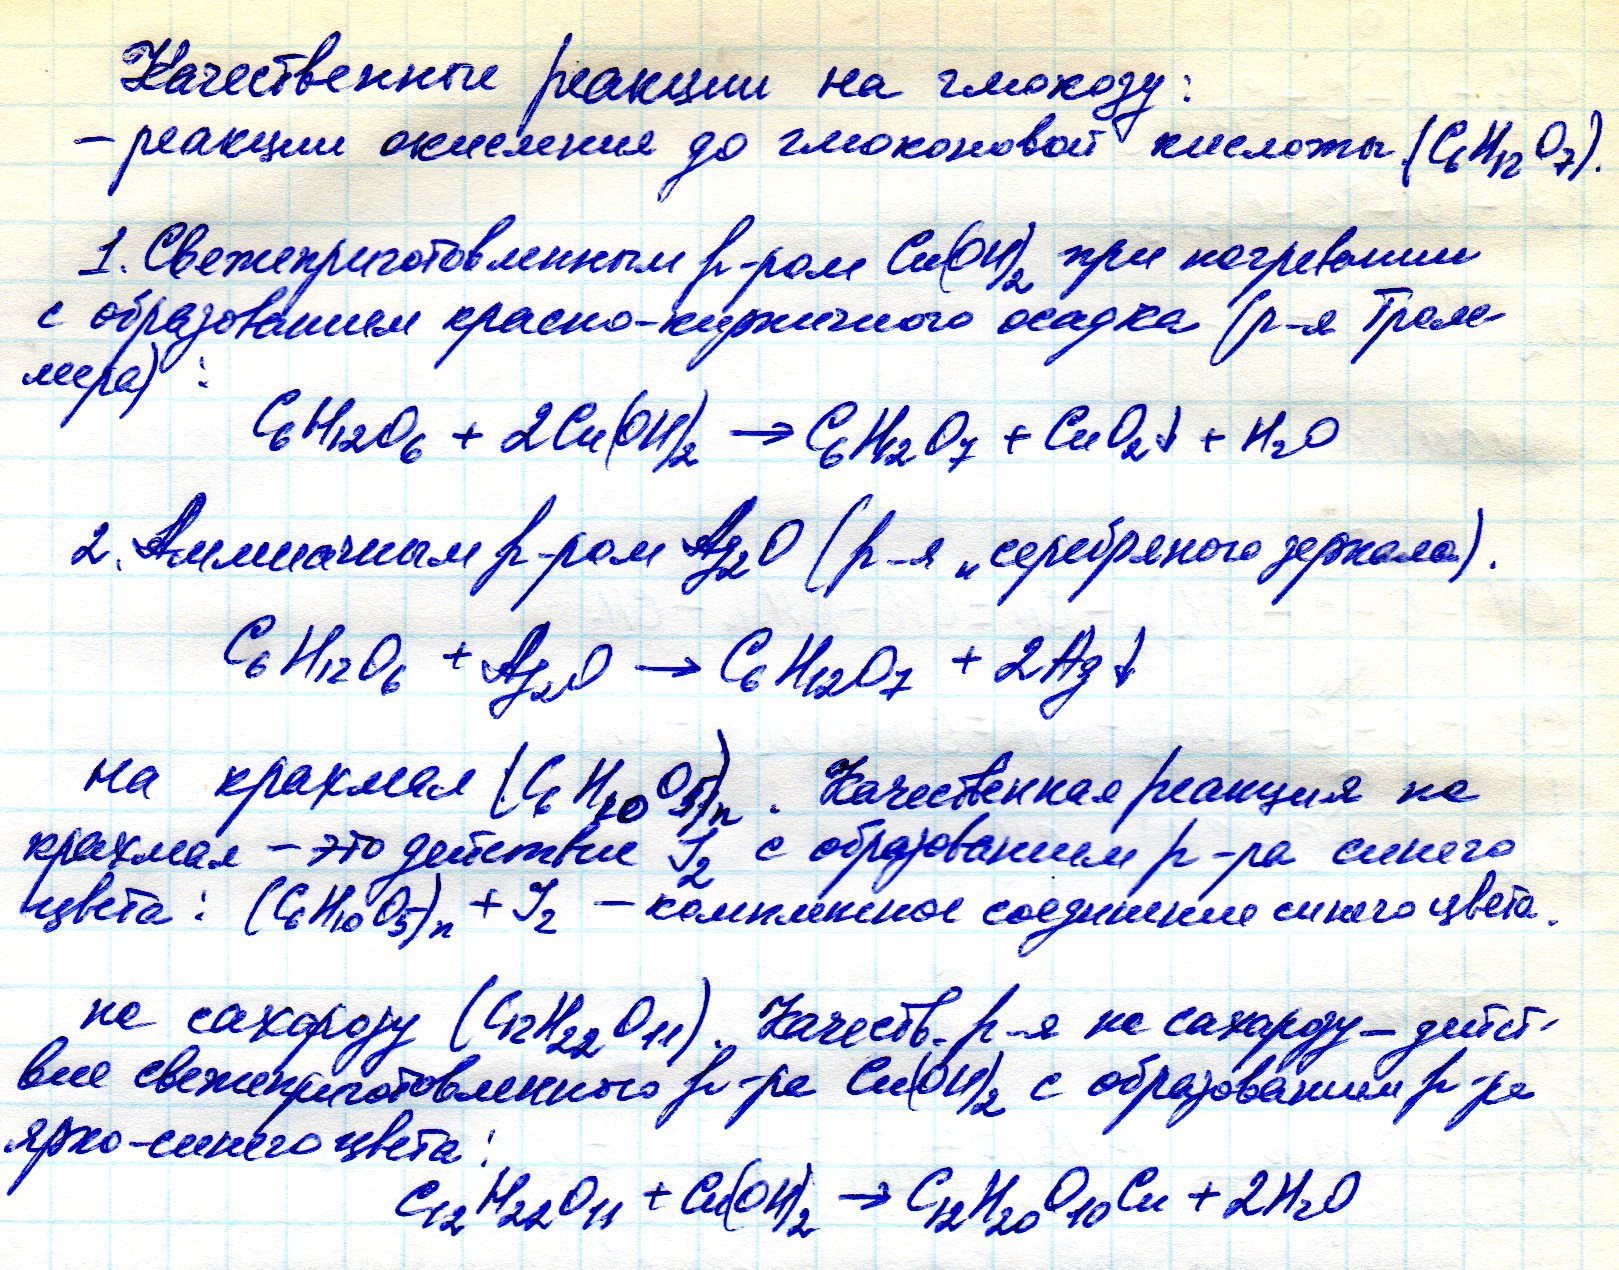 Качественные реакции на глюкозу:
– реакции окисления до глюконовой кислоты (C₆H₁₂O₇).
1. Свежеприготовленным р-ром Cu(OH)₂ при нагревании
с образованием красно-кирпичного осадка (р-я Тром-
мера):
C₆H₁₂O₆ + 2Cu(OH)₂ → C₆H₁₂O₇ + CuO₂↓ + H₂O
2. Аммиачным р-ром Ag₂O (р-я „серебряного зеркала).
C₆H₁₂O₆ + Ag₂O → C₆H₁₂O₇ + 2Ag↓
на крахмал (C₆H₁₀O₅)ₙ. Качественная реакция на
крахмал – это действие I₂ с образованием р-ра синего
цвета: (C₆H₁₀O₅)ₙ + I₂ – комплексное соединение синего цвета.
на сахарозу (C₁₂H₂₂O₁₁). Качеств. р-я на сахарозу – дейст-
вие свежеприготовленного р-ра Cu(OH)₂ с образованием р-ра
ярко-синего цвета:
C₁₂H₂₂O₁₁ + Cu(OH)₂ → C₁₂H₂₀O₁₀Cu + 2H₂O